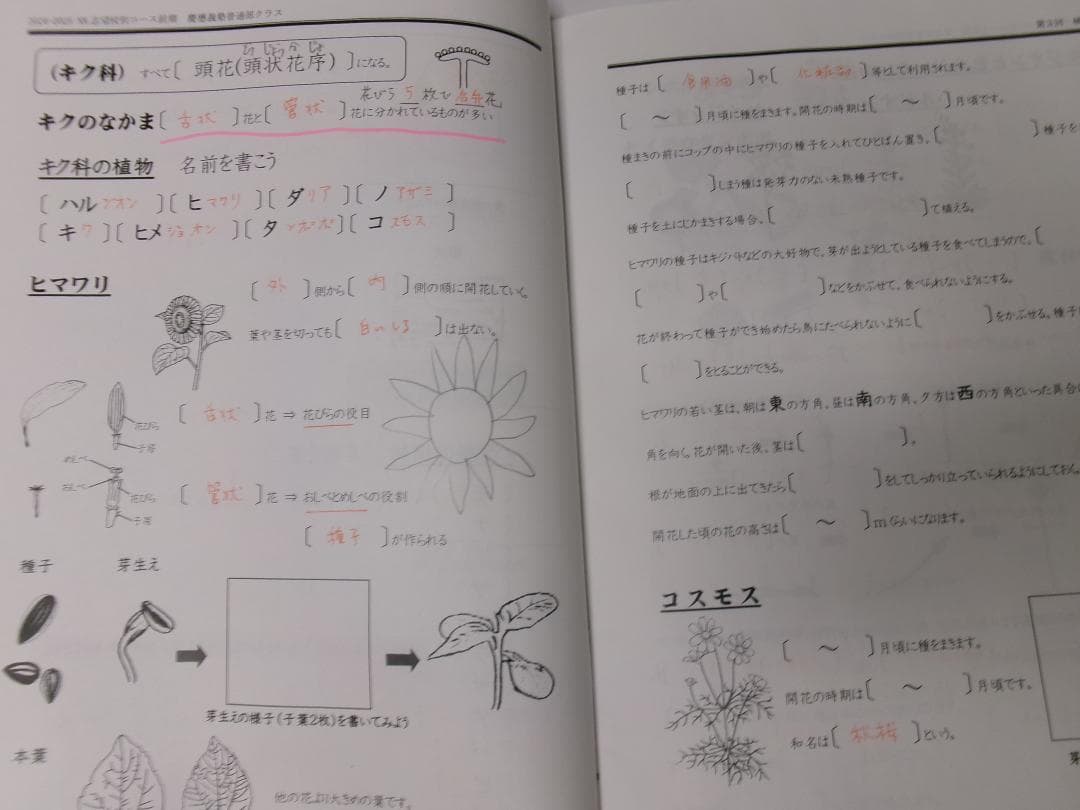 慶應義塾普通部クラス
とうじょうかじょ
(キク科) すべて[ 頭花(頭状花序) ]になる。
花びら5枚で合弁花
キクのなかま[ 舌状 ]花と[ 管状 ]花に分かれているものが多い
キク科の植物 名前を書こう
[ ハルジオン ][ ヒマワリ ][ ダリア ][ ノアザミ ]
[ キク ][ ヒメジョオン ][ タンポポ ][ コスモス ]
ヒマワリ
[ 外 ]側から[ 内 ]側の順に開花していく。
葉や茎を切っても[ 白いしる ]は出ない。
[ 舌状 ]花 ⇒ 花びらの役目
花びら
子房
めしべ
おしべ
花びら
子房
[ 管状 ]花 ⇒ おしべとめしべの役割
[ 種子 ]が作られる
種子 芽生え
芽生えの様子(子葉2枚)を書いてみよう
本葉
他の花より大きめの葉です。
第3回
種子は[ 食用油 ]や[ 化粧品 ]等として利用されます。
[ ～ ]月頃に種をまきます。開花の時期は[ ～ ]月頃です。
種まきの前にコップの中にヒマワリの種子を入れてひとばん置き、[ ]種子を
[ ]しまう種は発芽力のない未熟種子です。
種子を土にじかまきする場合、[ ]て植える。
ヒマワリの種子はキジバトなどの大好物で、芽が出ようとしている種子を食べてしまうので、[
[ ]や[ ]などをかぶせて、食べられないようにする。
花が終わって種子ができ始めたら鳥にたべられないように[ ]をかぶせる。種子
[ ]をとることができる。
ヒマワリの若い茎は、朝は東の方角、昼は南の方角、夕方は西の方角といった具合
角を向く。花が開いた後、茎は[ ]。
根が地面の上に出てきたら[ ]をしてしっかり立っていられるようにしておく。
開花した頃の花の高さは[ ～ ]mくらいになります。
コスモス
[ ～ ]月頃に種をまきます。
開花の時期は[ ～ ]月頃です。
和名は[ 秋桜 ]という。
芽